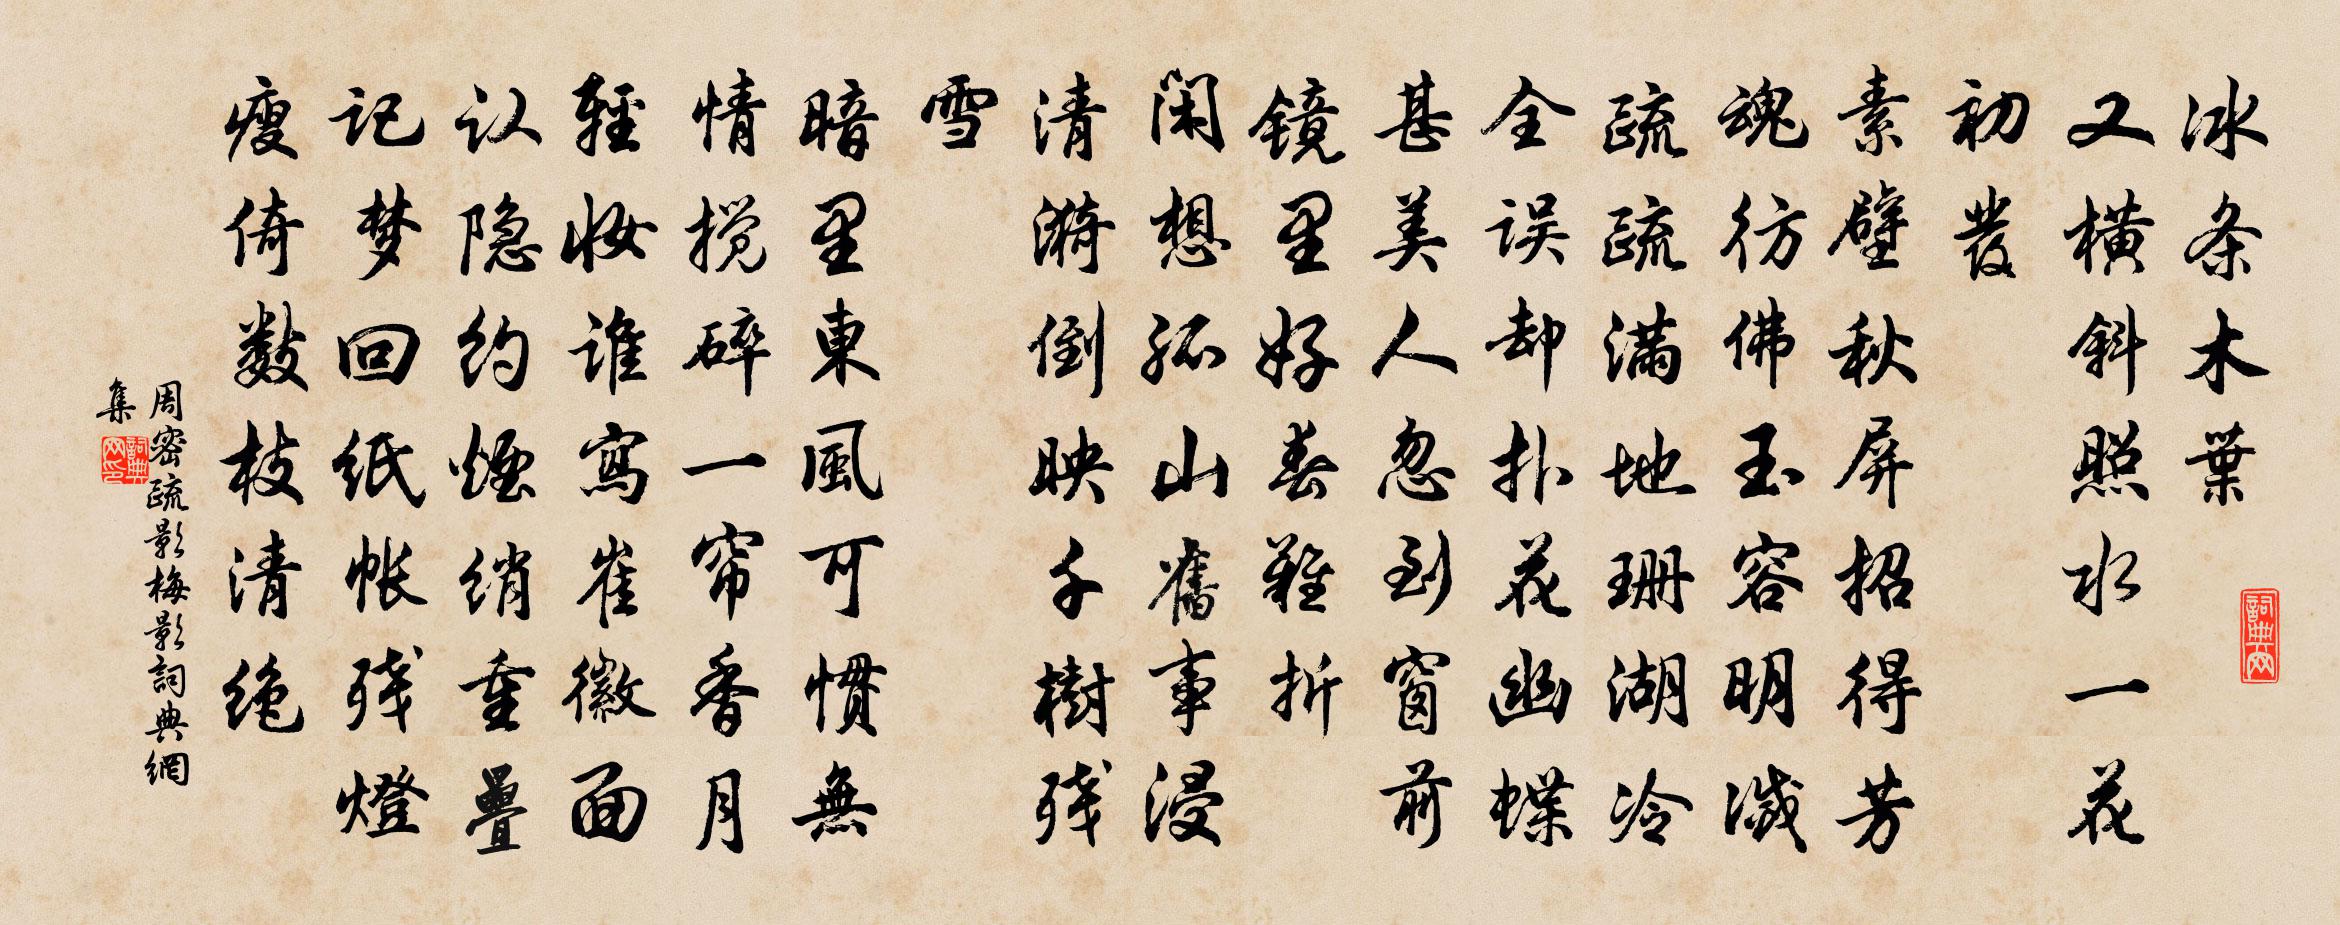 冰条木葉
又橫斜照水一花
初發
素壁秋屏招得芳
魂彷佛玉容明滅
疏疏满地珊湖冷
全误却扑花幽蝶
甚美人忽到窗前
镜里好春难折
闲想孤山舊事浸
清漪倒映千樹残
雪
暗里東風可惯無
情搅碎一帘香月
輕妆谁寫崔徽面
认隐约煙绡重疊
记梦回纸帐残燈
瘦倚数枝清绝
周密疏影梅影詞典網
集
詞典网
詞典网印